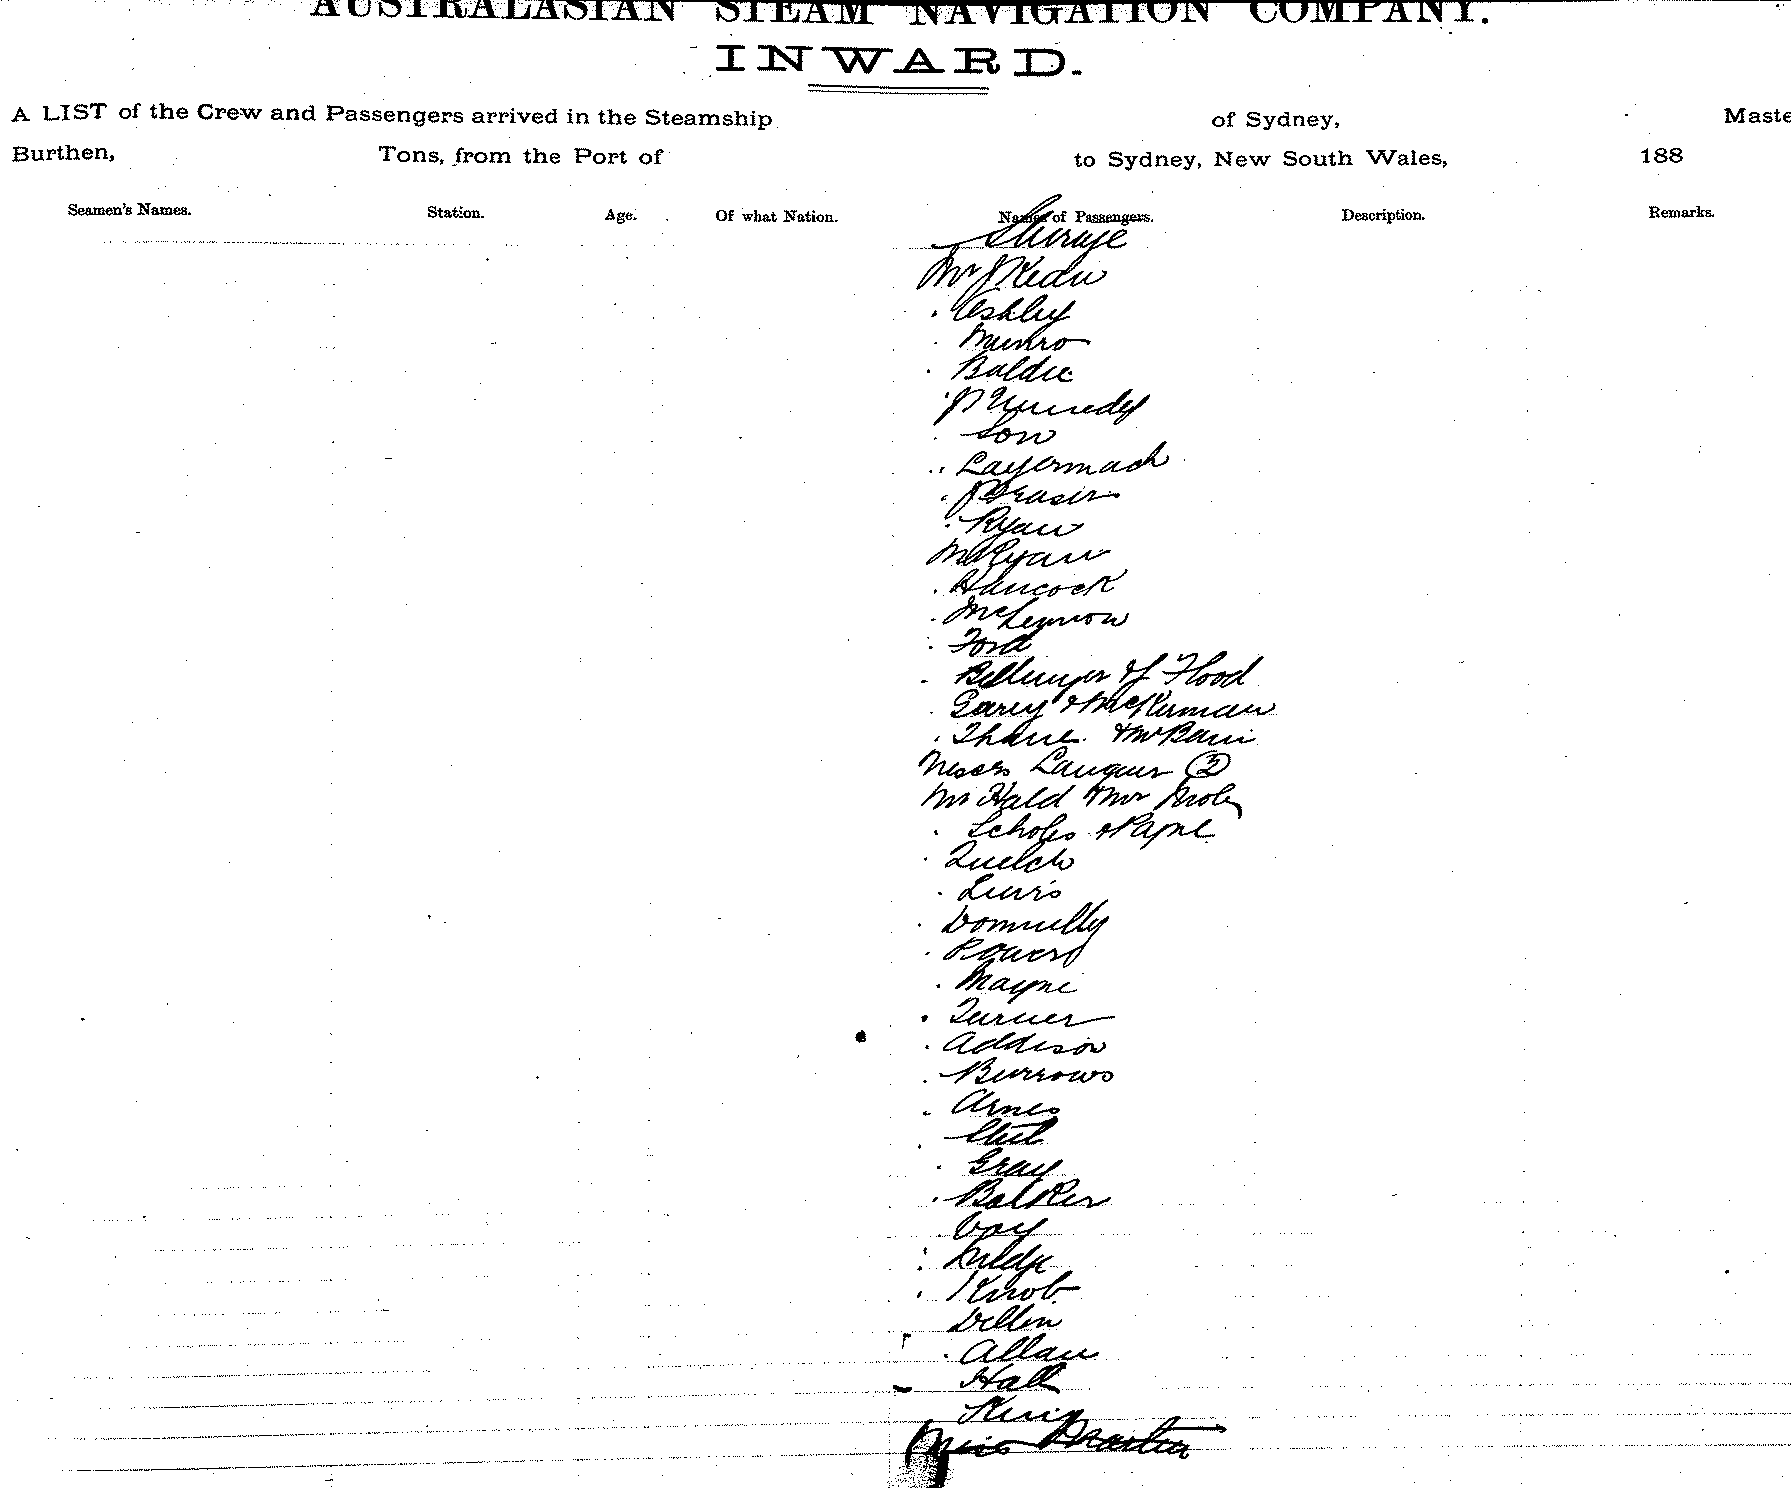 AUSTRALASIAN STEAM NAVIGATION COMPANY.
INWARD.
A LIST of the Crew and Passengers arrived in the Steamship of Sydney, Maste
Burthen, Tons, from the Port of to Sydney, New South Wales, 188
Seamen's Names. Station. Age. Of what Nation. Names of Passengers. Description. Remarks.
Mr J Kean
Ashley
Munro
Baldie
J Kennedy
Son
Layermach
J Fraser
Ryan
M Ryan
Hancock
McLennon
Ford
Bellinger & J Flood
Garey & McKernan
Thane & Mr Bain
Messrs Langwer (2)
Mr Hald & Mr
Scholes & Payne
Quelch
Lewis
Donnelly
Powers
Mayne
Turner
Addison
Burrows
Arnes
Gray
Balker
Coy
Knob
Dillon
Allan
Hall
King
Miss Martin